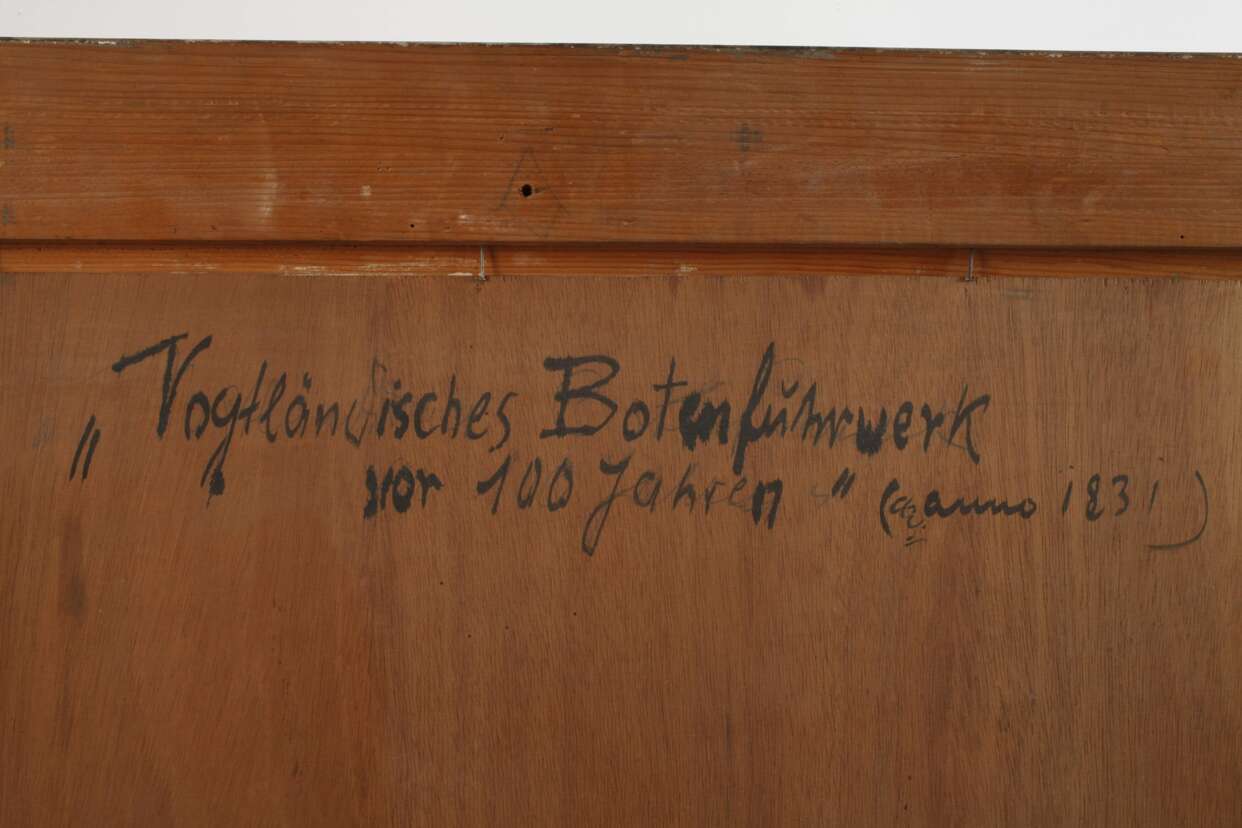 „Vogtländisches Botenfuhrwerk
vor 100 Jahren" (anno 1831)